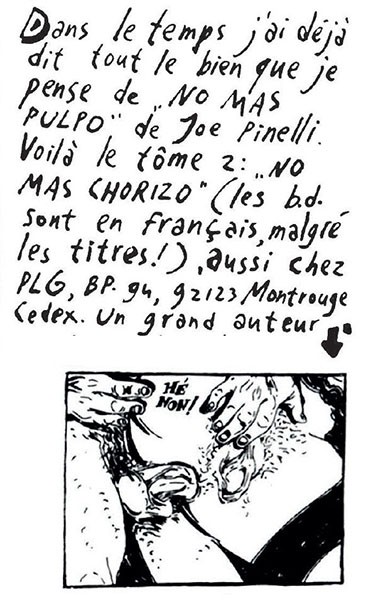 Dans le temps j'ai déjà
dit tout le bien que je
pense de „NO MAS
PULPO" de Joe Pinelli.
Voilà le tôme 2: „NO
MAS CHORIZO" (les b.d.
sont en français, malgré
les titres!), aussi chez
PLG, BP. 94, 92123 Montrouge
Cedex. Un grand auteur
HÉ
NON!